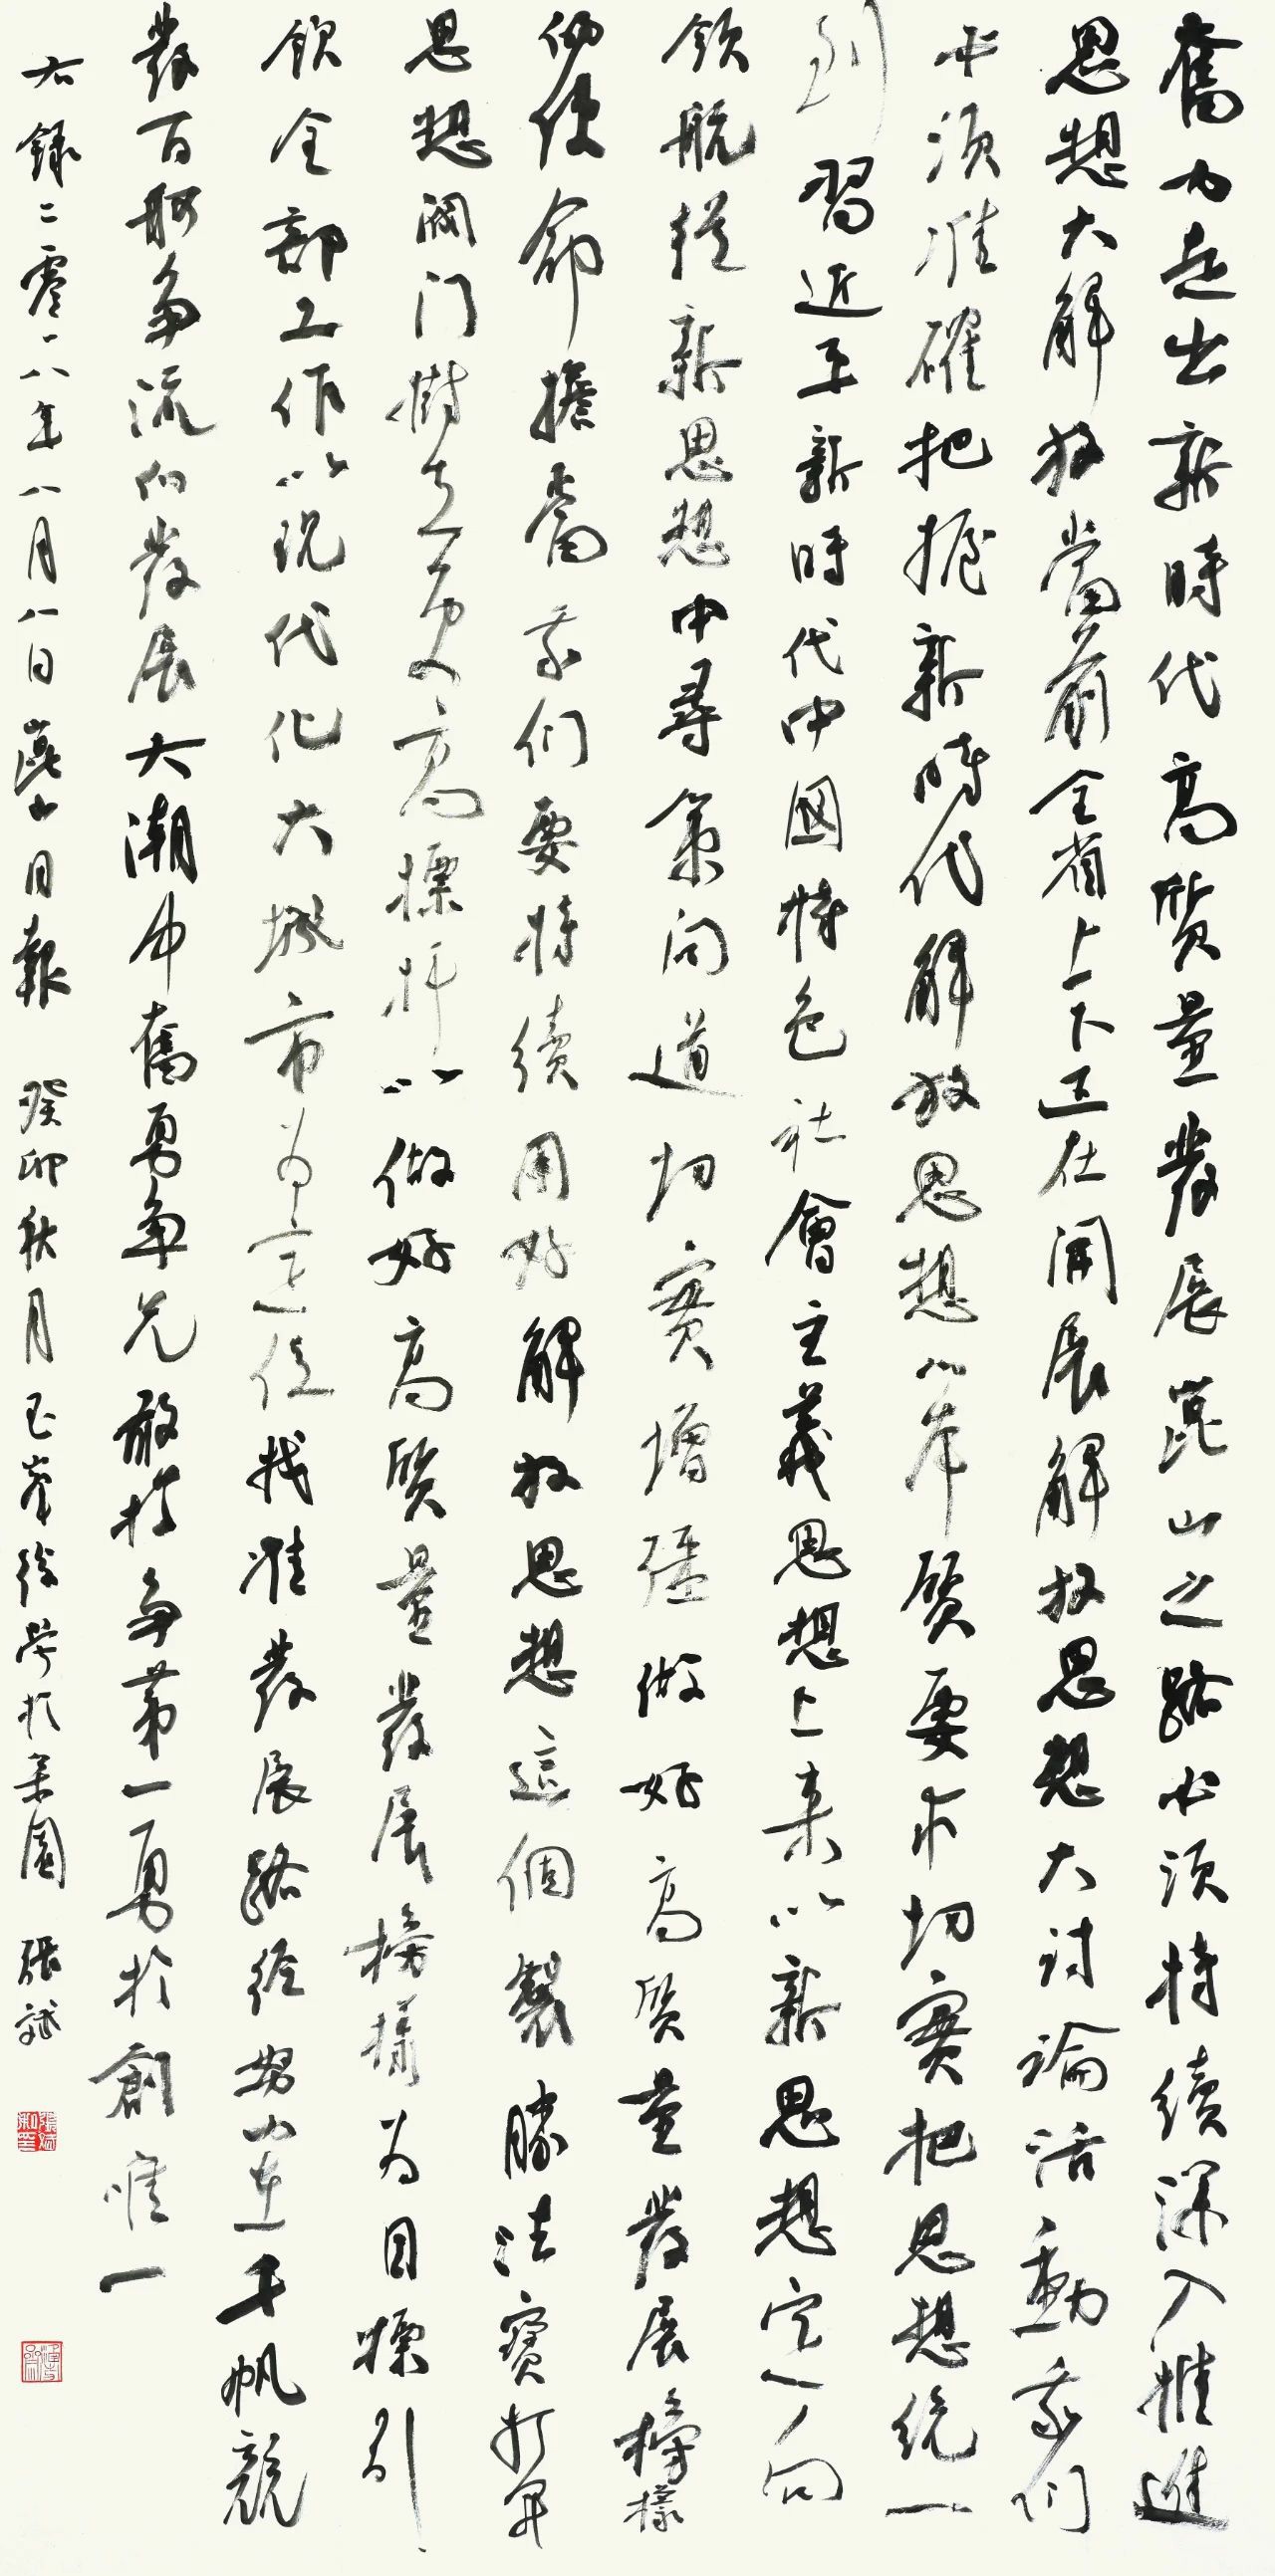 奮力走出新時代高質量發展崑山之路必須持續深入推進
思想大解放當前全省上下正在開展解放思想大討論活動我們
必須準確把握新時代解放思想的本質要求切實把思想統一
到習近平新時代中國特色社會主義思想上來以新思想定向
領航從新思想中尋策問道切實增強做好高質量發展榜樣
的使命擔當我們要持續用好解放思想這個製勝法寶打開
思想閥门樹立更高標杆以做好高質量發展榜樣為目標引
領全部工作以現代化大城市為定位找准發展路徑努力在千帆競
發百舸争流的發展大潮中奮勇争先敢於争第一勇於創唯一
右録二零一八年八月八日崑山日報 癸卯秋月玉峯 於 園 張斌